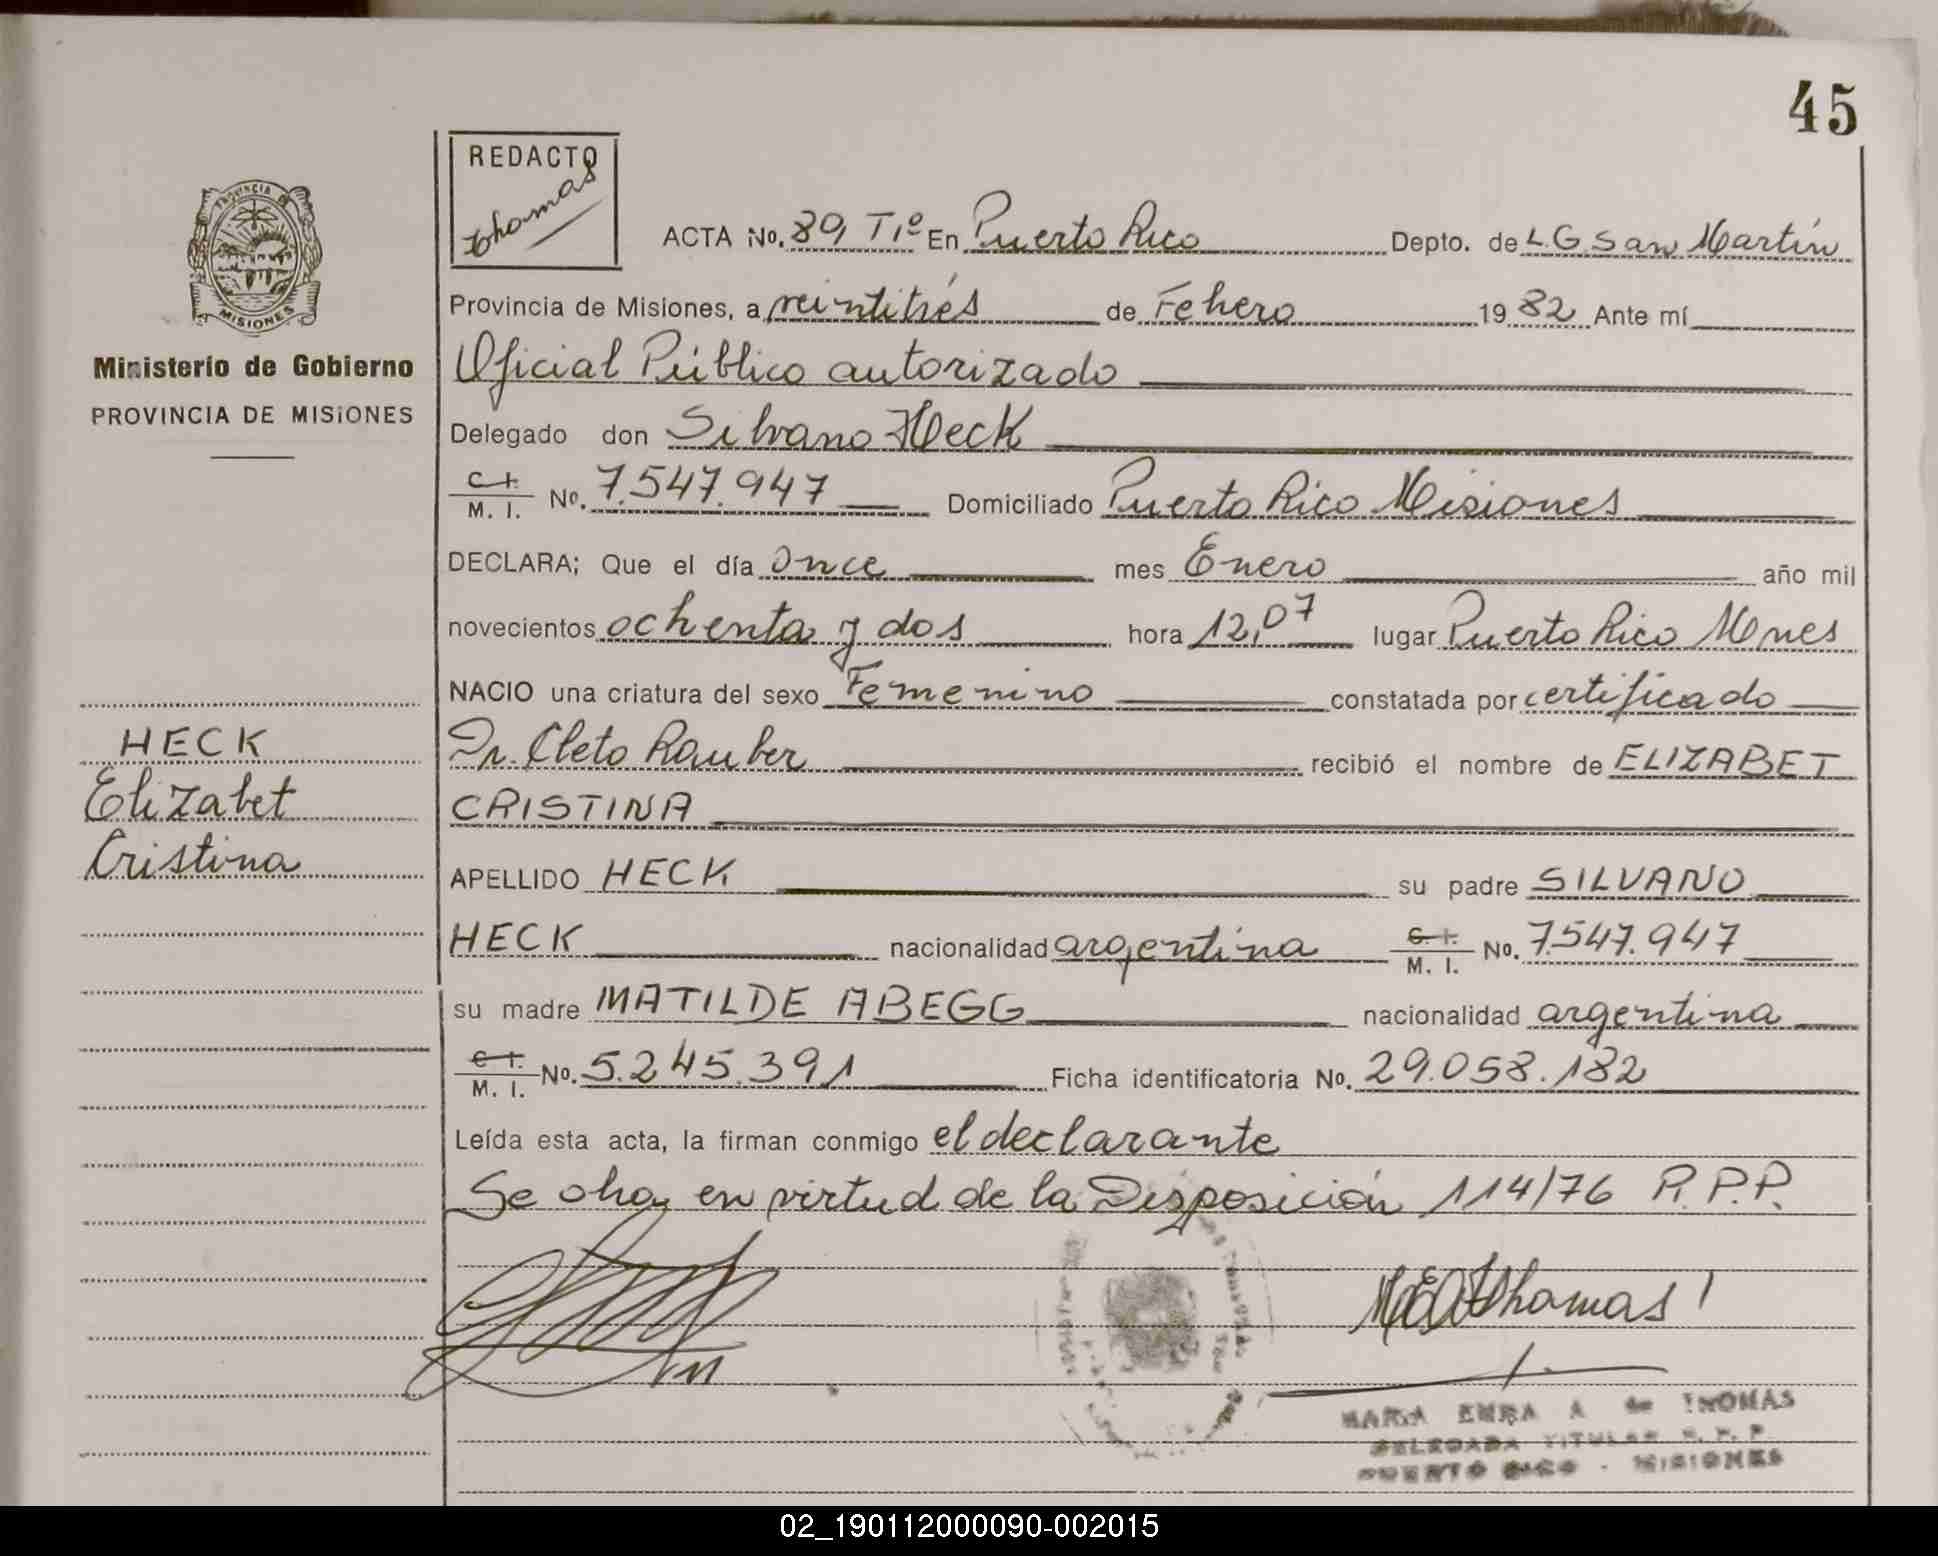 45
REDACTO
Thomas
ACTA No. 89, T1º En Puerto Rico Depto. de L.G. San Martín
Provincia de Misiones, a veintitrés de Febero 1982 Ante mí
Oficial Público autorizado
Delegado don Silvano Heck
C.I. M. I. No. 7.547.947 Domiciliado Puerto Rico Misiones
DECLARA; Que el día once mes Enero año mil
novecientos ochenta y dos hora 12,07 lugar Puerto Rico Mnes
NACIO una criatura del sexo Femenino constatada por certificado
Dr. Cleto Rauber recibió el nombre de ELIZABET
CRISTINA
APELLIDO HECK su padre SILVANO
HECK nacionalidad argentina C.I. M. I. No. 7.547.947
su madre MATILDE ABEGG nacionalidad argentina
C.I. M. I. No. 5.245.391 Ficha identificatoria No. 29.058.182
Leída esta acta, la firman conmigo el declarante
Se en virtud de la Disposición 114/76 R.P.P.
Thomas
MARIA A de THOMAS
DELEGADA TITULAR R. P. P.
PUERTO RICO - MISIONES
PROVINCIA DE
MISIONES
Ministerio de Gobierno
PROVINCIA DE MISIONES
HECK
Elizabet
Cristina
02_190112000090-002015